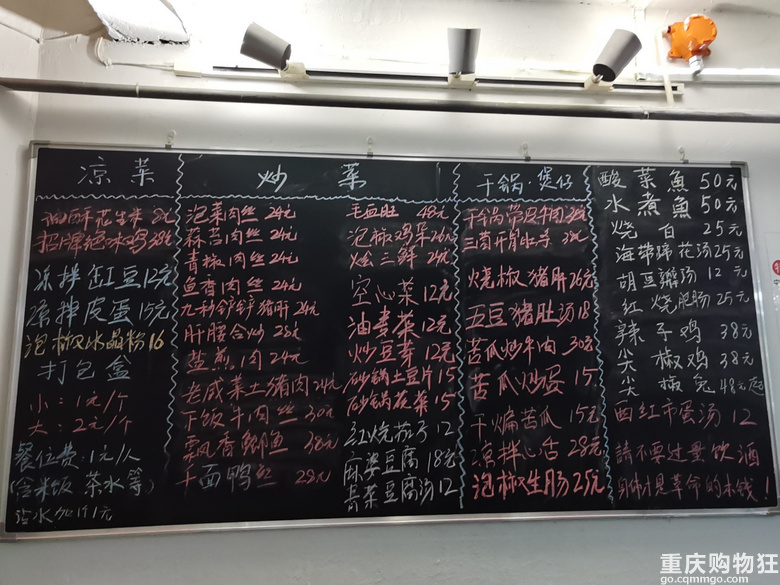 凉菜
油酥花生米
招牌 味鸡
凉拌缸豆12元
凉拌皮蛋15元
泡椒水晶粉16
打包盒
小:1元/个
大:2元/个
餐位费:1元/人
(含米饭 茶水等)
炒菜
泡菜肉丝 24元
蒜苔肉丝 24元
青椒肉丝 24元
鱼香肉丝 24元
九秒铲铲猪肝 24元
肝腰合炒 28元
盐煎肉 24元
老咸菜土猪肉 24元
下饭牛肉丝 30元
飘香鲫鱼 38元
千面鸭 28元
毛血旺 48元
泡椒鸡杂26元
烩三鲜 24元
空心菜12元
油麦菜 12元
炒豆芽 12元
砂锅土豆片15
砂锅蔬菜15
红烧茄子12
麻婆豆腐18元
青菜豆腐汤12
干锅·煲仔
干锅带皮牛肉
烧椒猪肝26元
豆猪肚汤18
苦瓜炒牛肉 30元
苦瓜炒蛋 15
干煸苦瓜 15元
凉拌心舌 28元
泡椒生肠25元
酸菜魚50元
水煮魚50元
烧白 25元
海带蹄花汤25元
胡豆瓣汤 12元
红烧肥肠25元
辣子鸡 38元
尖椒鸡 38元
尖椒兔 48元起
西红市蛋汤 12
請不要过量饮酒
身体才是革命的本钱!
重庆购物狂
go.cqmmgo.com